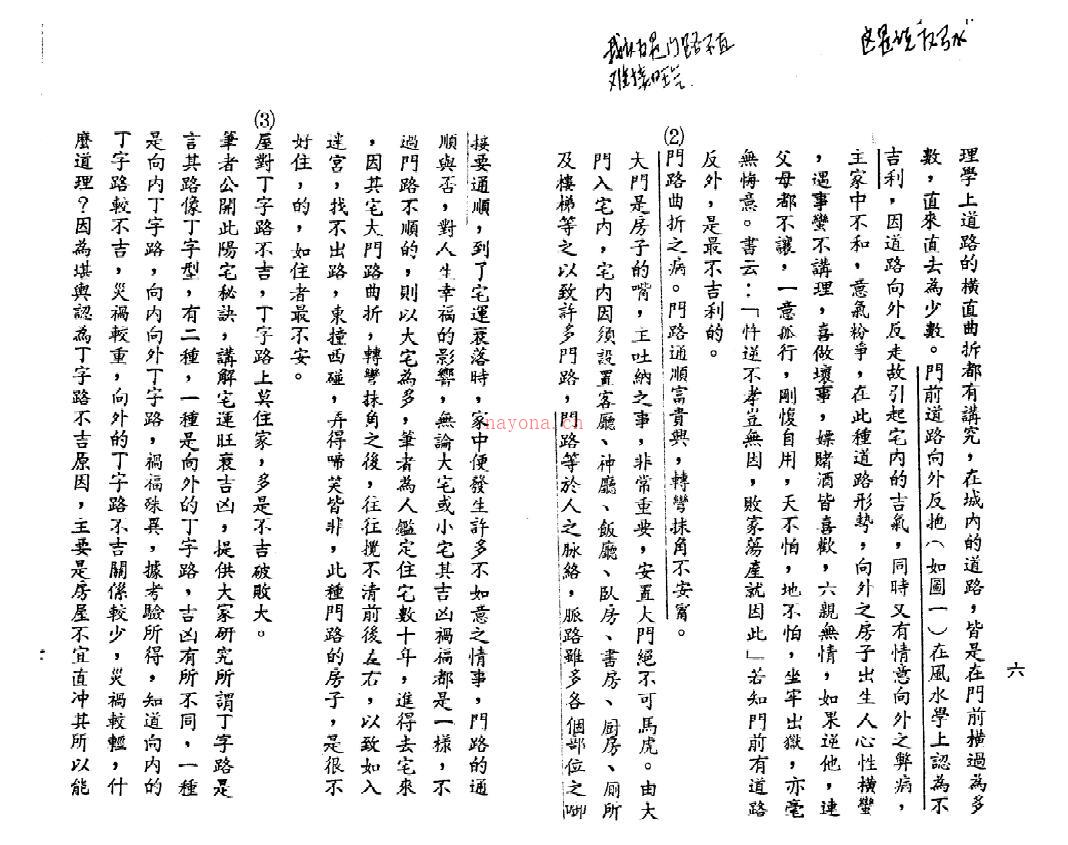 這是說"反弓水"
我認為是門路不直
難接旺氣
六
理學上道路的橫直曲折都有講究，在城內的道路，皆是在門前橫過為多
數，直來直去為少數。門前道路向外反抱（如圖一）在風水學上認為不
吉利，因道路向外反走故引起宅內的吉氣，同時又有情意向外之弊病，
主家中不和，意氣紛爭，在此種道路形勢，向外之房子出生人心性橫蠻
，遇事蠻不講理，喜做壞事，嫖賭酒皆喜歡，六親無情，如果逆他，連
父母都不讓，一意孤行，剛愎自用，天不怕，地不怕，坐牢出獄，亦毫
無悔意。書云：「忤逆不孝豈無因，敗家蕩產就因此」若知門前有道路
反外，是最不吉利的。
⑵門路曲折之病。門路通順富貴興，轉彎抹角不安甯。
大門是房子的嘴，主吐納之事，非常重要，安置大門絕不可馬虎。由大
門入宅內，宅內因須設置客廳、神廳、飯廳、臥房、書房、厨房、厠所
及樓梯等之以致許多門路，門路等於人之脉絡，脈路雖多各個部位之啣
接要通順，到了宅運衰落時，家中便發生許多不如意之情事，門路的通
順與否，對人生幸福的影響，無論大宅或小宅其吉凶禍福都是一樣，不
過門路不順的，則以大宅為多，筆者為人鑑定住宅數十年，進得去宅來
，因其宅大門路曲折，轉彎抹角之後，往往攪不清前後左右，以致如入
迷宮，找不出路，東撞西碰，弄得啼笑皆非，此種門路的房子，是很不
好住，的，如住者最不安。
⑶屋對丁字路不吉，丁字路上莫住家，多是不吉破敗大。
筆者公開此陽宅秘訣，講解宅運旺衰吉凶，提供大家研究所謂丁字路是
言其路像丁字型，有二種，一種是向外的丁字路，吉凶有所不同，一種
是向內丁字路，向內向外丁字路，禍福殊異，據考驗所得，知道向內的
丁字路較不吉，災禍較重，向外的丁字路不吉關係較少，災禍較輕，什
麼道理？因為堪輿認為丁字路不吉原因，主要是房屋不宜直冲其所以能
nayona.cn